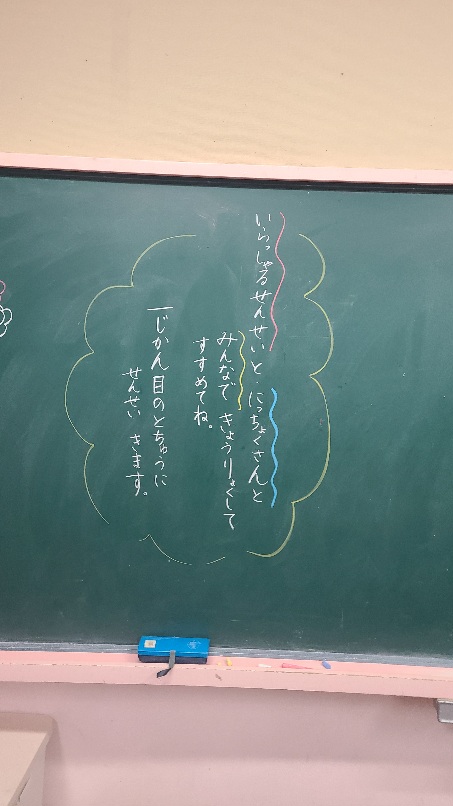 いらっしゃるせんせいと、にっちょくさんと
みんなで きょうりょくして
すすめてね。
一じかん目のとちゅうに
せんせい きます。